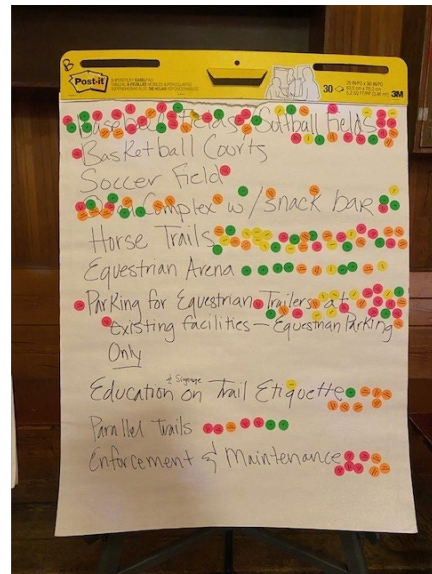 B
Post-it
30
3M
Baseball Fields Softball Fields
Basketball Courts
Soccer Field
Complex w/ snack bar
Horse Trails
Equestrian Arena
Parking for Equestrian Trailers at
existing facilities — Equestrian Parking
Only
Education & Signage on Trail Etiquette
Parallel Trails
Enforcement & Maintenance